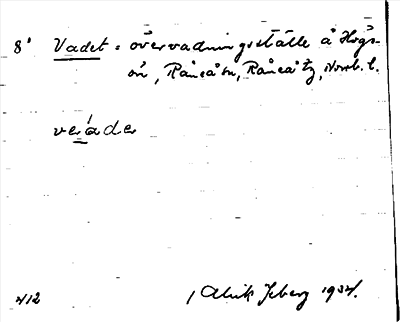 8' Vadet = övervadningsställe å Högs-
ön, Råneå sn, Råneå tg, Norrb. l.
veade
412 Alrik Isberg 1934.